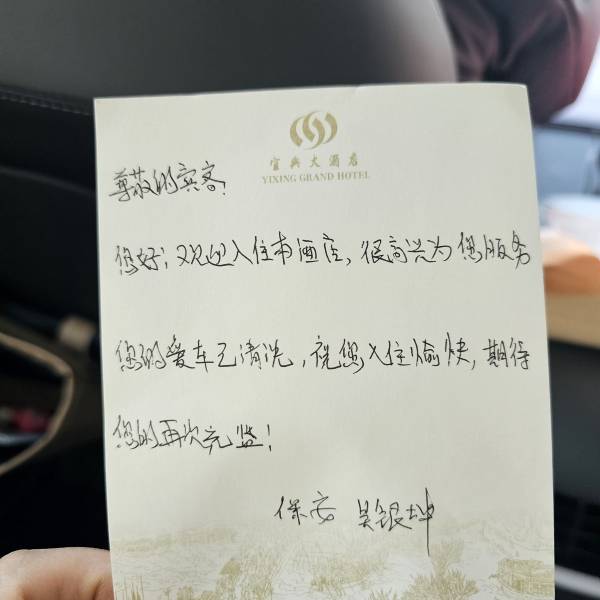 宜兴大酒店
YIXING GRAND HOTEL
尊敬的宾客:
您好!欢迎入住本酒店,很高兴为您服务
您的爱车已清洗,祝您入住愉快,期待
您的再次光临!
保安 吴银坤